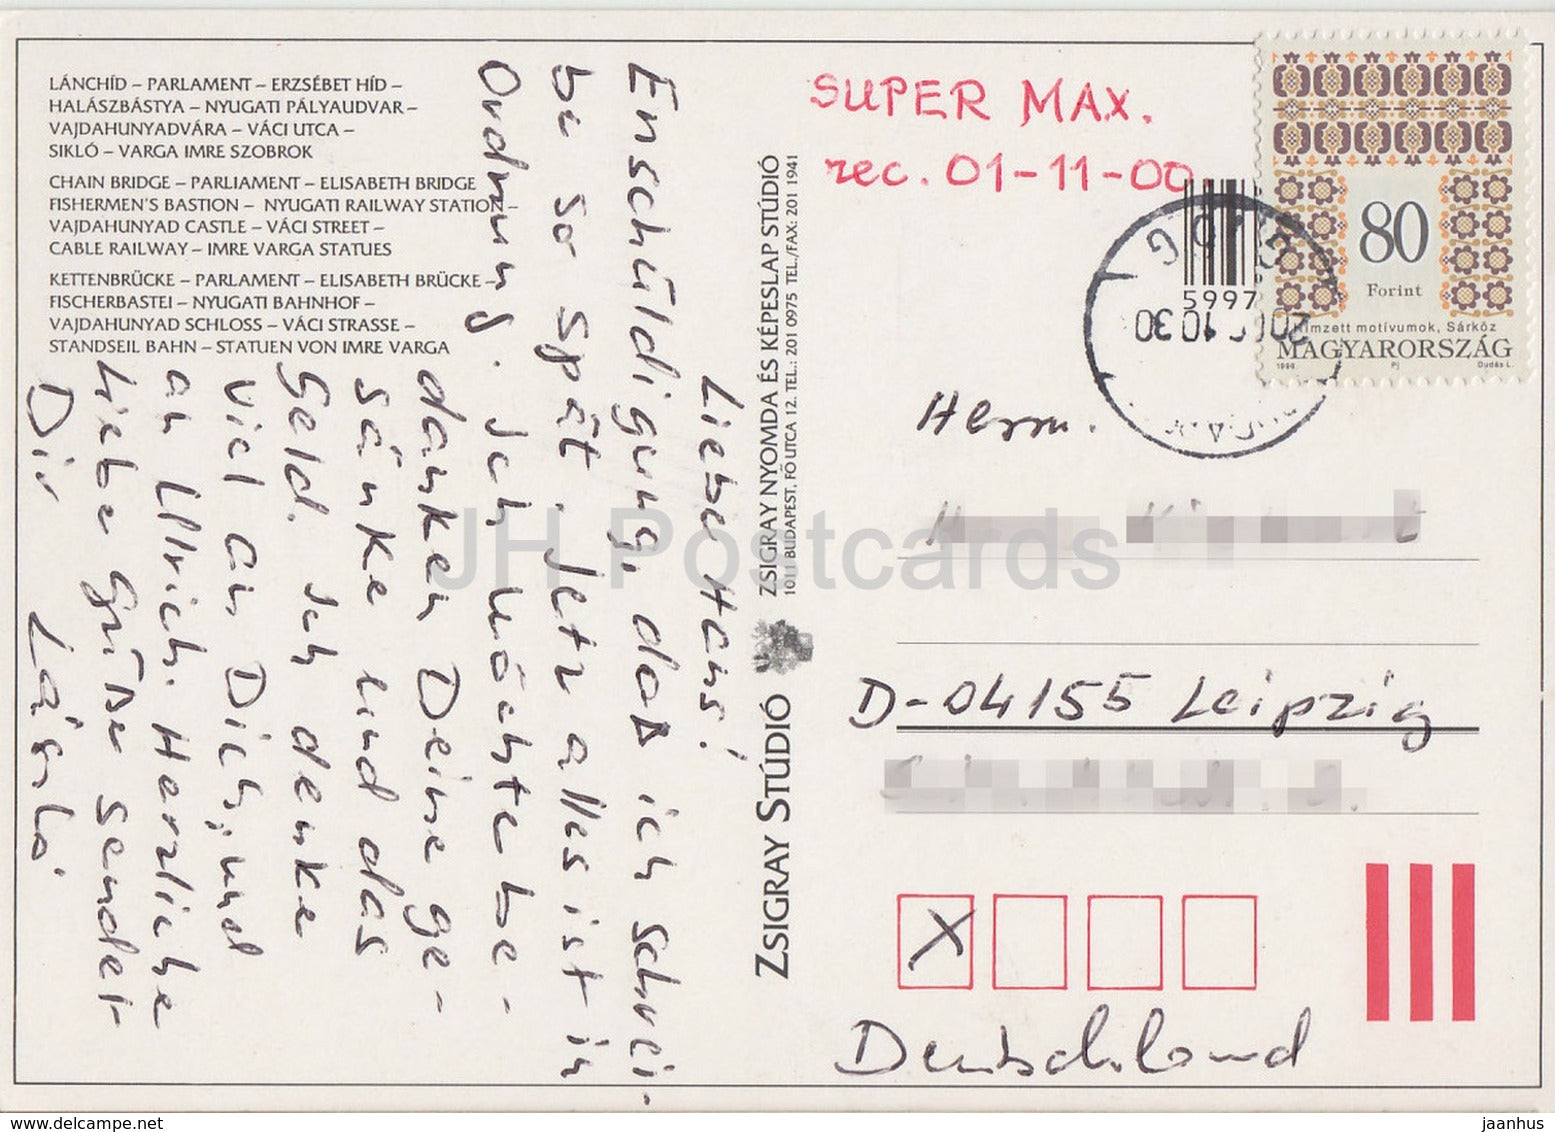 LÁNCHÍD – PARLAMENT – ERZSÉBET HÍD –
HALÁSZBÁSTYA – NYUGATI PÁLYAUDVAR –
VAJDAHUNYADVÁRA – VÁCI UTCA –
SIKLÓ – VARGA IMRE SZOBROK
CHAIN BRIDGE – PARLIAMENT – ELISABETH BRIDGE
FISHERMEN'S BASTION – NYUGATI RAILWAY STATION –
VAJDAHUNYAD CASTLE – VÁCI STREET –
CABLE RAILWAY – IMRE VARGA STATUES
KETTENBRÜCKE – PARLAMENT – ELISABETH BRÜCKE –
FISCHERBASTEI – NYUGATI BAHNHOF –
VAJDAHUNYAD SCHLOSS – VÁCI STRASSE –
STANDSEIL BAHN – STATUEN VON IMRE VARGA
Lieber Hans!
Enschüldigung, daß ich schrei-
be so spät. Jetz alles ist in
Ordnung. Ich möchte be-
danken Deine ge-
sänke und das
Geld. Ich denke
viel an Dich, und
an Ullrich. Herzliche
Liebe Grüße sendet
Dir László
ZSIGRAY STÚDIÓ
ZSIGRAY NYOMDA ÉS KÉPESLAP STÚDIÓ
1011 BUDAPEST, FŐ UTCA 12. TEL.: 201 0975 TEL./FAX: 201 1941
SUPER MAX.
rec. 01-11-00.
5997
10 30
80
Forint
Hímzett motívumok, Sárköz
MAGYARORSZÁG
1996 Pj Dudás L.
Herrn.
D-04155 Leipzig
X
Deutschland
JH Postcards
www.delcampe.net
jaanhus